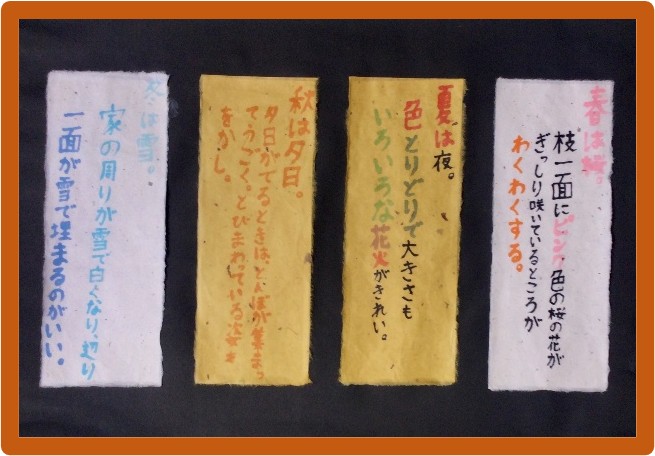 春は桜。
枝一面にピンク色の桜の花が
ぎっしり咲いているところが
わくわくする。
夏は夜。
色とりどりで大きさも
いろいろな花火がきれい。
秋は夕日。
夕日がでるときは、とんぼが集まっ
てうごく。とびまわっている姿も
をかし。
冬は雪。
家の周りが雪で白くなり、辺り
一面が雪で埋まるのがいい。